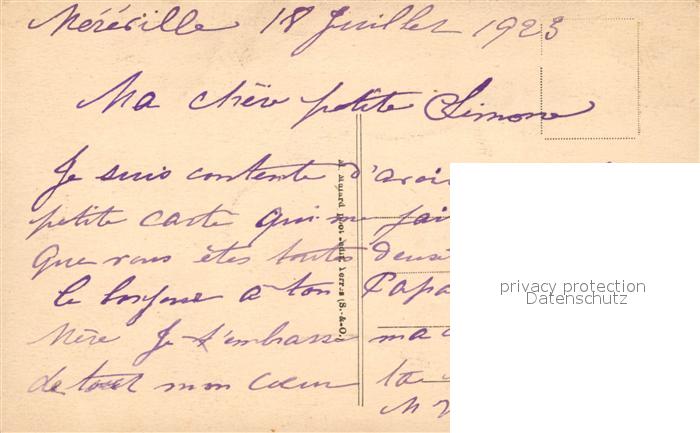 Méréville 18 Juillet 1923
Ma chère petite Simone
Je suis contente d'avoir
petite carte qui me fai
Que vous êtes toutes deux
le bonjour a ton Papa
Mère Je t'embrasse ma
de tout mon Cœur
M
privacy protection
Datenschutz